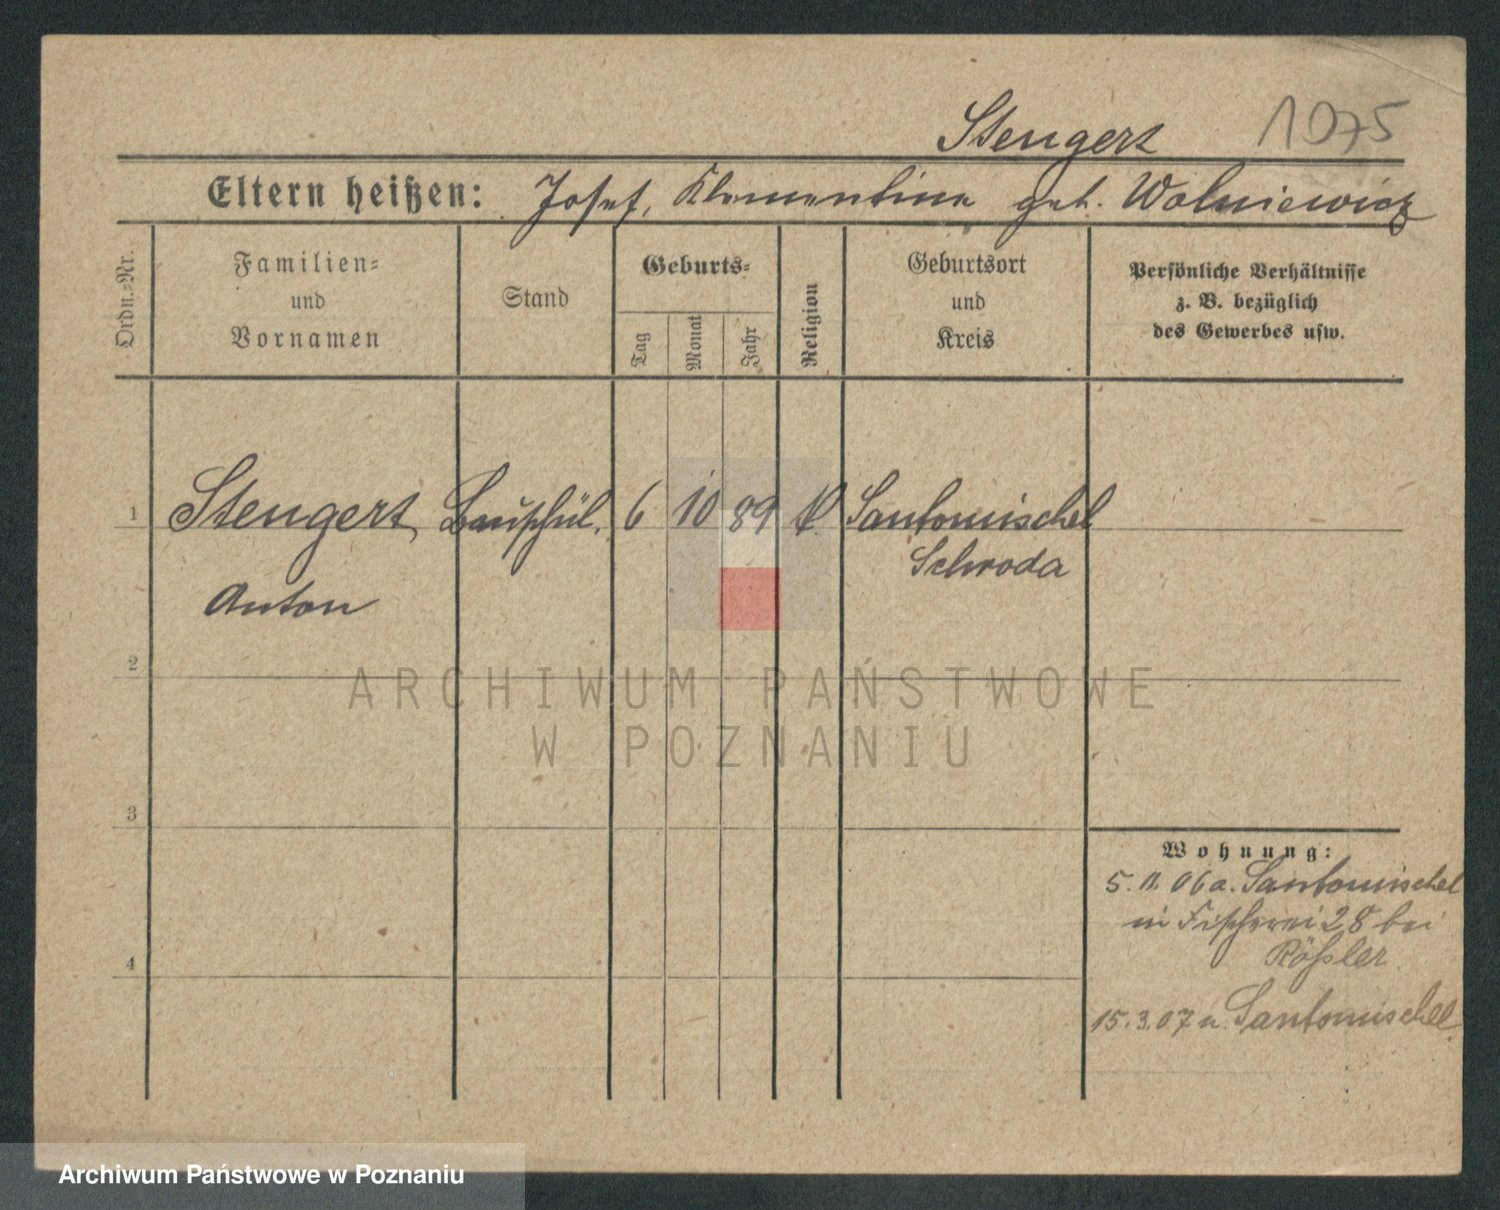 Stengert 1075
Eltern heißen: Josef, Klementine geb. Wolniewicz
Ordn.-Nr.
Familien-
und
Vornamen
Stand
Geburts-
Tag
Monat
Jahr
Religion
Geburtsort
und
Kreis
Persönliche Verhältnisse
z. B. bezüglich
des Gewerbes usw.
1 Stengert Bauschül. 6 10 89 k. Santomischel
Schroda
Anton
2
ARCHIWUM PAŃSTWOWE
W POZNANIU
3
Wohnung:
5. 11. 06 a. Santomischel
in Fischerei 28 bei
Rößler
4
15. 3. 07 n. Santomischel
Archiwum Państwowe w Poznaniu